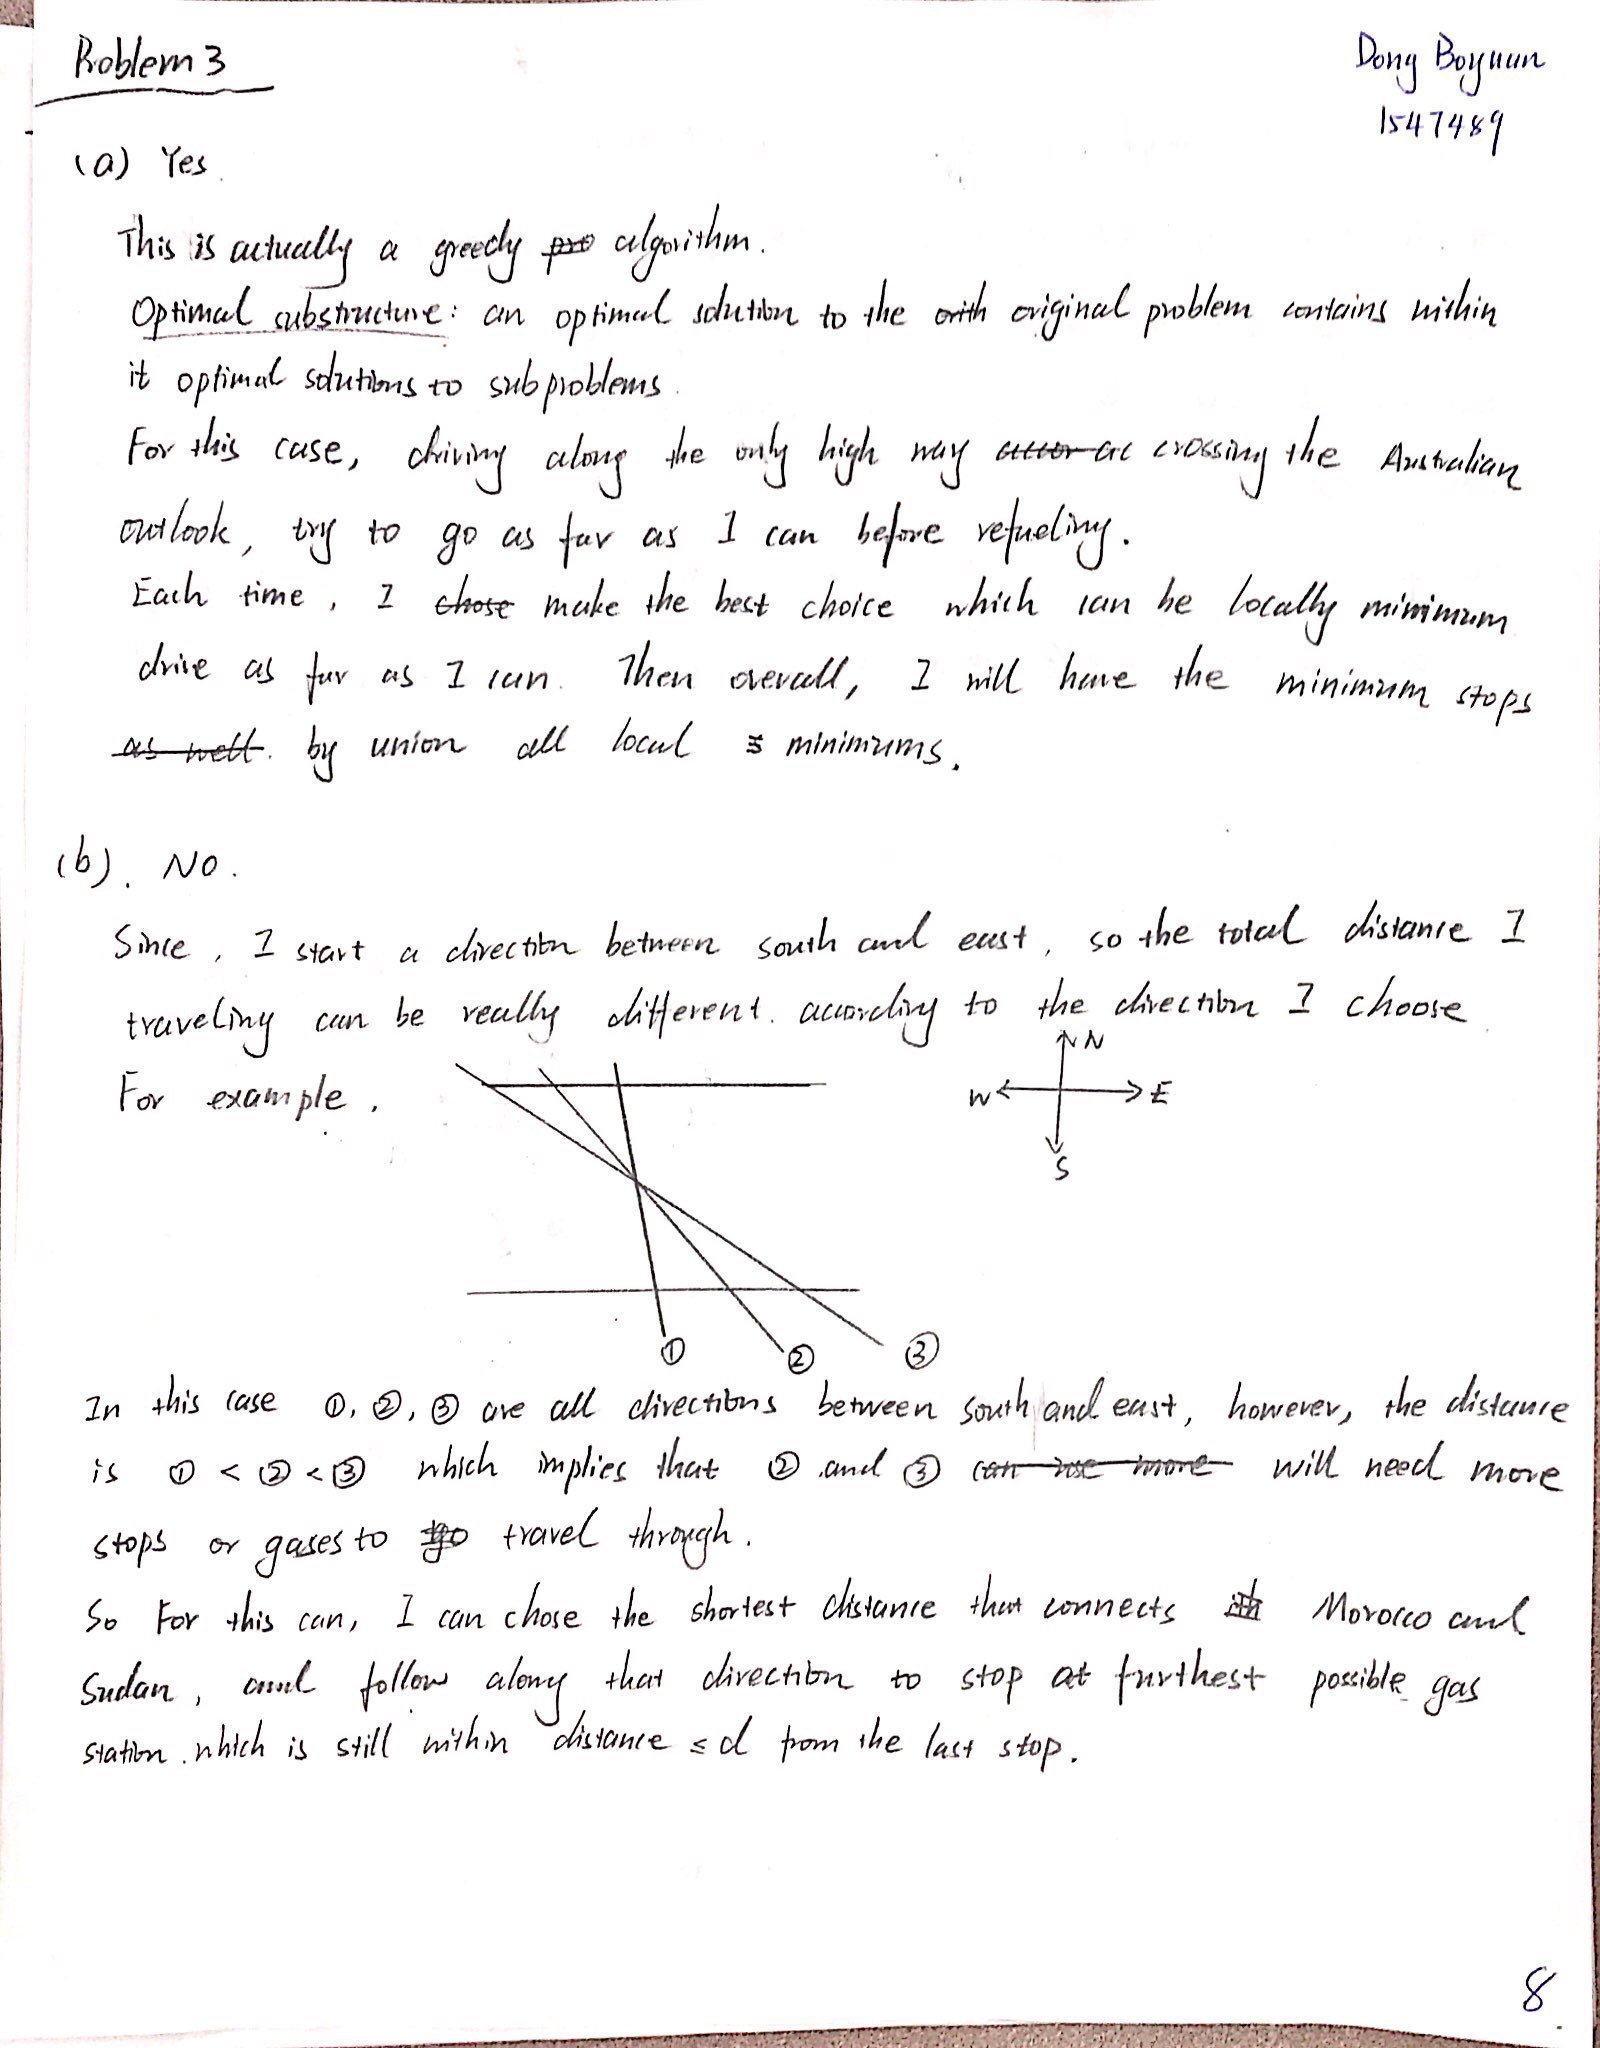 Problem 3
Dong Boyuan
1547489
(a) Yes.
This is actually a greedy pro algorithm.
Optimal substructure: an optimal solution to the orith original problem contains within
it optimal solutions to subproblems.
For this case, driving along the only high way accor ac crossing the Australian
outlook, try to go as far as I can before refueling.
Each time, I chose make the best choice which can be locally minimum
drive as far as I can. Then overall, I will have the minimum stops
as well. by union all local minimums.
(b). NO.
Since, I start a direction between south and east, so the total distance I
traveling can be really different. according to the direction I choose
For example,
N
W E
S
① ② ③
In this case ①, ②, ③ are all directions between south and east, however, the distance
is ① < ② < ③ which implies that ② and ③ can use more will need more
stops or gases to go travel through.
So For this can, I can chose the shortest distance that connects Morocco and
Sudan, and follow along that direction to stop at furthest possible gas
station. which is still within distance ≤ d from the last stop.
8